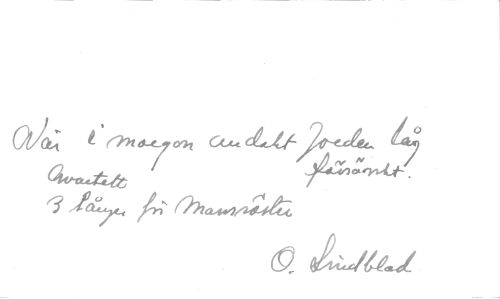 När i morgon andakt Jorden låg
försänkt.
Qvartett
3 Sånger för Mansröster
O. Lindblad